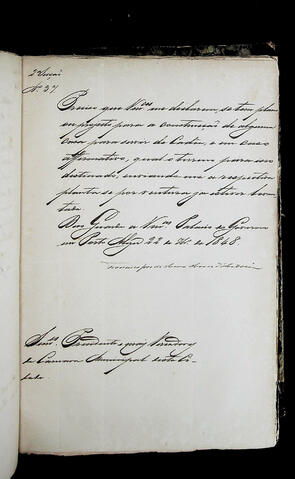 2ª Secção
N. 37
Preciso que Vmces me declarem, se tem plano
ou projeto para a construcção de alguma
casa para servir de Cadêa, e em caso
affirmativo, qual o terreno para isso
destinado, enviando-me a respectiva
planta se por ventura ja estiver levan-
tada.
Deos Guarde a Vmces Palacio do Governo
em Porto Alegre 22 de de 1848.
Francisco José de Souza Soares d'Andréa
Snres Presidente e mais Vereadores
da Camara Municipal desta Ci-
dade.